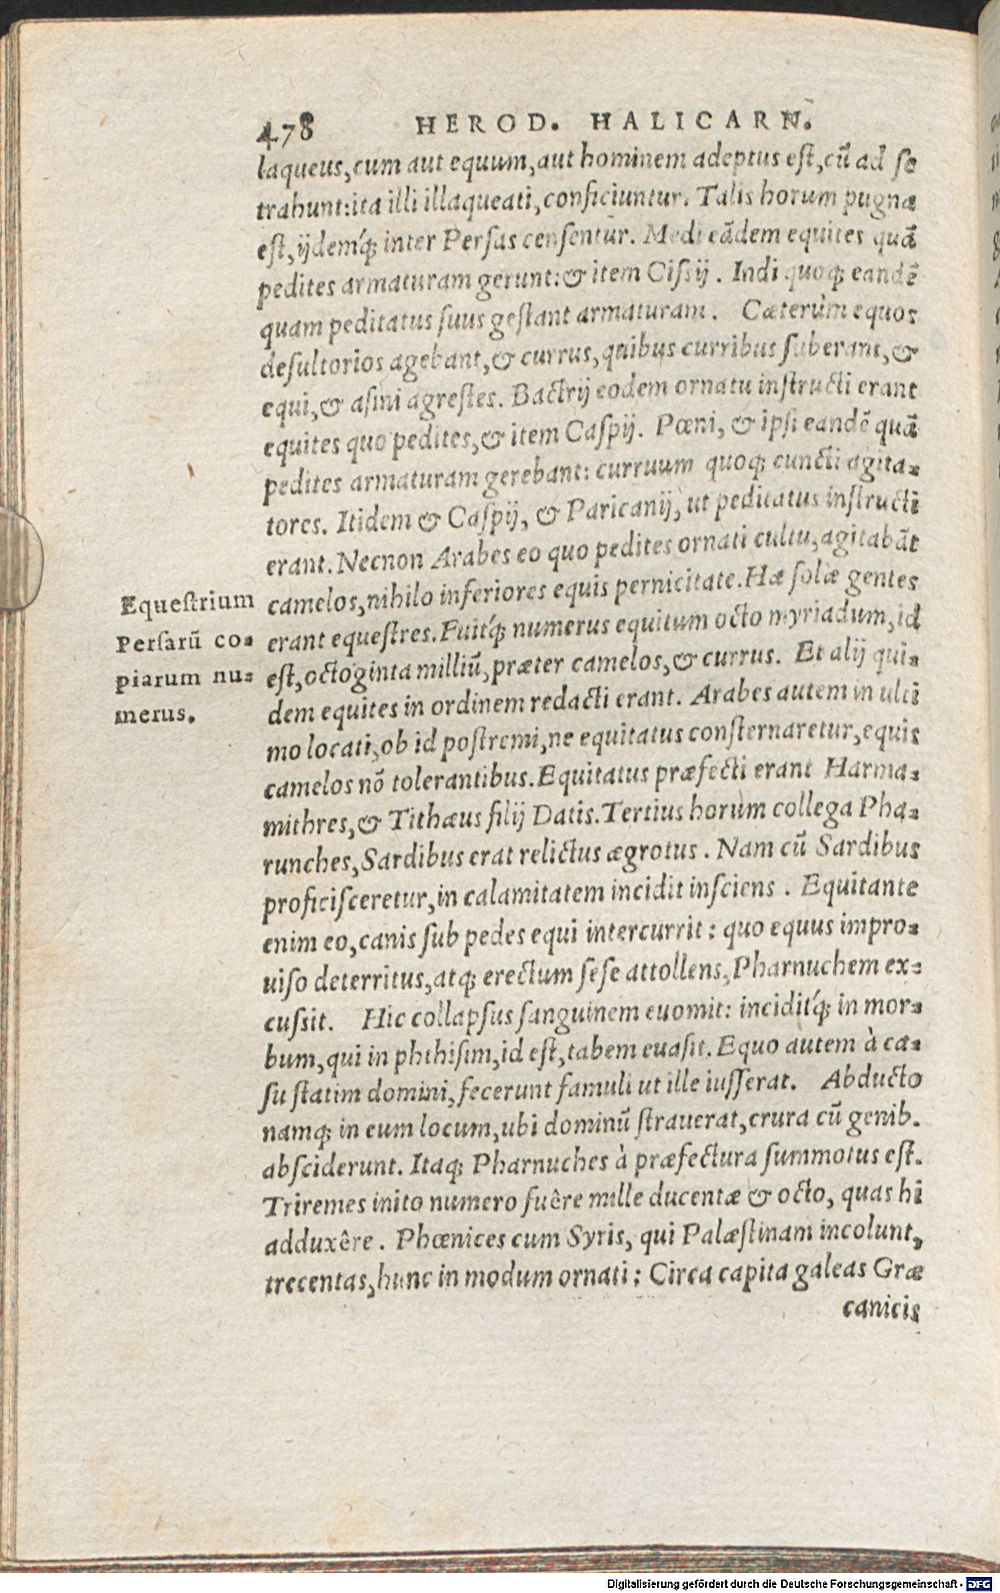 478 HEROD. HALICARN.
laqueus, cum aut equum, aut hominem adeptus est, cũ ad se
trahunt: ita illi illaqueati, conficiuntur. Talis horum pugna
est, ijdemq́; inter Persas censentur. Medi eãdem equites quã
pedites armaturam gerunt: & item Cissij. Indi quoq; eandẽ
quam peditatus suus gestant armaturam. Cæterùm equos
desultorios agebant, & currus, quibus curribus suberant, &
equi, & asini agrestes. Bactrij eodem ornatu instructi erant
equites quo pedites, & item Caspij. Pœni, & ipsi eandẽ quã
pedites armaturam gerebant: curruum quoq; cuncti agita-
tores. Itidem & Caspij, & Paricanij, ut peditatus instructi
erant. Necnon Arabes eo quo pedites ornati cultu, agitabãt
camelos, nihilo inferiores equis pernicitate. Hæ solæ gentes
erant equestres. Fuitq́; numerus equitum octo myriadum, id
est, octoginta milliũ, præter camelos, & currus. Et alij qui-
dem equites in ordinem redacti erant. Arabes autem in ulti
mo locati, ob id postremi, ne equitatus consternaretur, equis
camelos nõ tolerantibus. Equitatus præfecti erant Harma-
mithres, & Tithæus filij Datis. Tertius horum collega Pha-
runches, Sardibus erat relictus ægrotus. Nam cũ Sardibus
proficisceretur, in calamitatem incidit insciens. Equitante
enim eo, canis sub pedes equi intercurrit: quo equus impro-
uiso deterritus, atq; erectum sese attollens, Pharnuchem ex-
cussit. Hic collapsus sanguinem euomit: inciditq́; in mor-
bum, qui in phthisim, id est, tabem euasit. Equo autem à ca-
su statim domini, fecerunt famuli ut ille iusserat. Abducto
namq; in eum locum, ubi dominũ strauerat, crura cũ genib.
absciderunt. Itaq; Pharnuches à præfectura summotus est.
Triremes inito numero fuêre mille ducentæ & octo, quas hi
adduxêre. Phœnices cum Syris, qui Palæstinam incolunt,
trecentas, hunc in modum ornati: Circa capita galeas Græ
canicis
Equestrium
Persarũ co-
piarum nu-
merus.
Digitalisierung gefördert durch die Deutsche Forschungsgemeinschaft - DFG